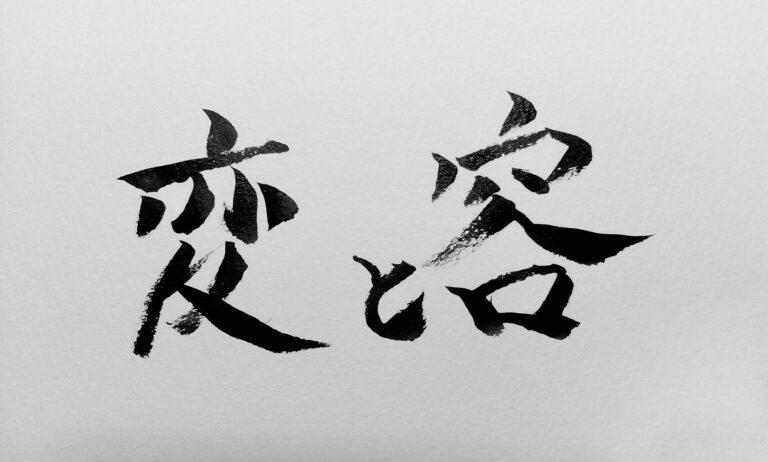 変と容